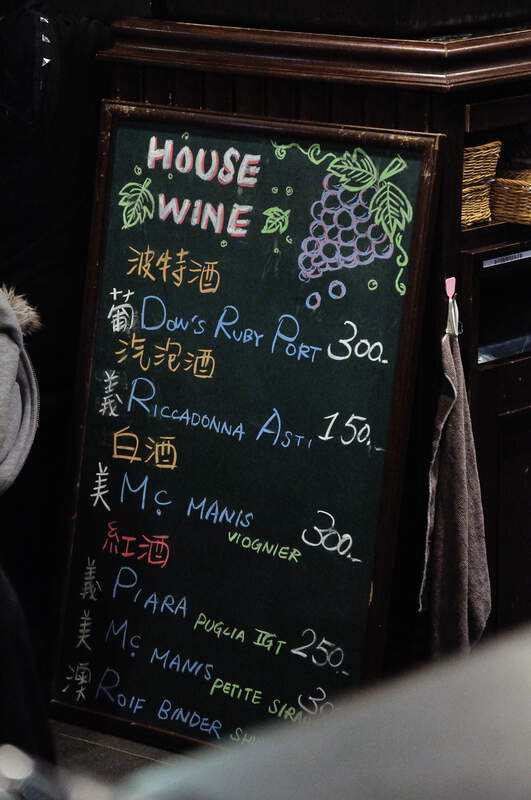 HOUSE
WINE
波特酒
葡 DOW'S RUBY PORT 300.-
汽泡酒
義 RICCADONNA ASTI 150.-
白酒
美 Mc MANIS
VIOGNIER 300.-
紅酒
義 PIARA PUGLIA IGT 250.-
美 Mc MANIS PETITE SIRAH
澳 ROIF BINDER